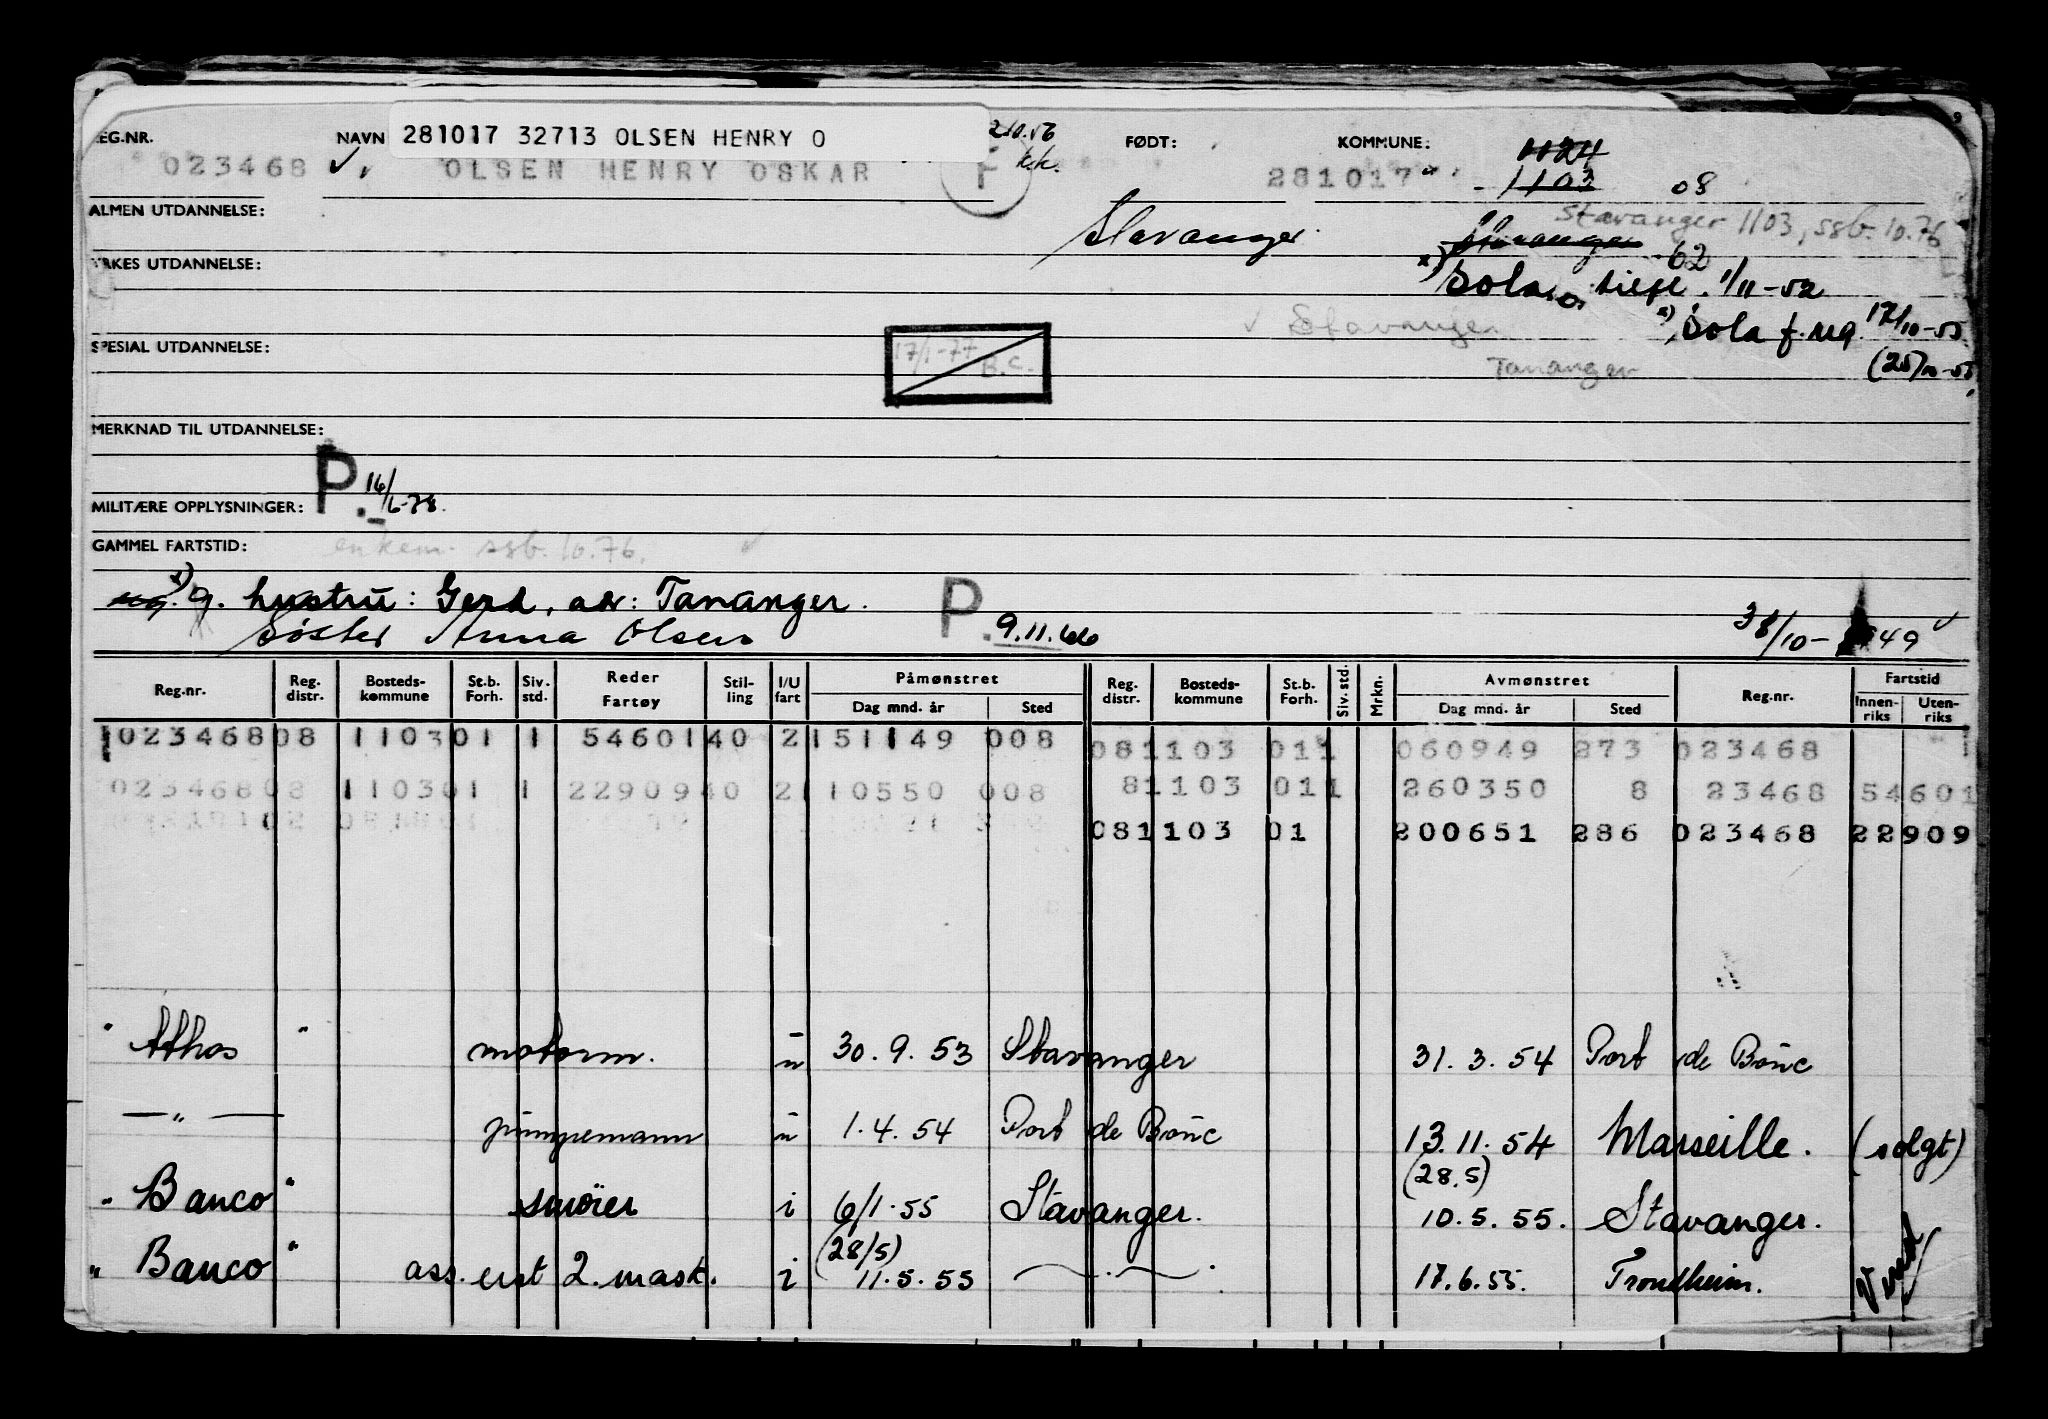 REG.NR. NAVN 281017 32713 OLSEN HENRY O FØDT: KOMMUNE: 1124
023468 OLSEN HENRY OSKAR F k.k. 281017 1103 08
ALMEN UTDANNELSE: Stavanger Stavanger Stavanger 1103, ssb. 10.76
YRKES UTDANNELSE: 62
Sola 1/11-52
Stavanger Sola f. reg. 17/10-55
SPESIAL UTDANNELSE: 17/1-77 B.C. Tananger (25/10-55)
MERKNAD TIL UTDANNELSE:
P. 16/6-78.
MILITÆRE OPPLYSNINGER:
GAMMEL FARTSTID: enkem. ssb. 10.76.
ug. g. hustru: Gerd, adr: Tananger. P.
søster Anna Olsen 9.11.66 /10- 49
Reg.nr. Reg. distr. Bosteds-kommune St.b. Forh. Siv. std. Reder Fartøy Stil-ling I/U fart Påmønstret Dag mnd. år Sted Reg. distr. Bosteds-kommune St.b. Forh. Siv. std. Mrkn. Avmønstret Dag mnd. år Sted Reg.nr. Fartstid Innen-riks Uten-riks
023468 08 1103 01 1 54601 40 2 151149 008 08 1103 01 1 060949 273 023468 1
023468 08 1103 01 1 22909 40 2 110550 008 8 1103 01 1 260350 8 23468 54601
08 1103 01 200651 286 023468 22909
" Athos " motorm. u 30.9.53 Stavanger 31.3.54 Port de Bouc
— " — pumpemann u 1.4.54 Port de Bouc 13.11.54 Marseille. (solgt)
" Banco " smører i 6/1.55 Stavanger. (28.5) 10.5.55. Stavanger.
" Banco " ass. erst 2. mask. i (28/5) 11.5.55 — " — 17.6.55. Trondheim.